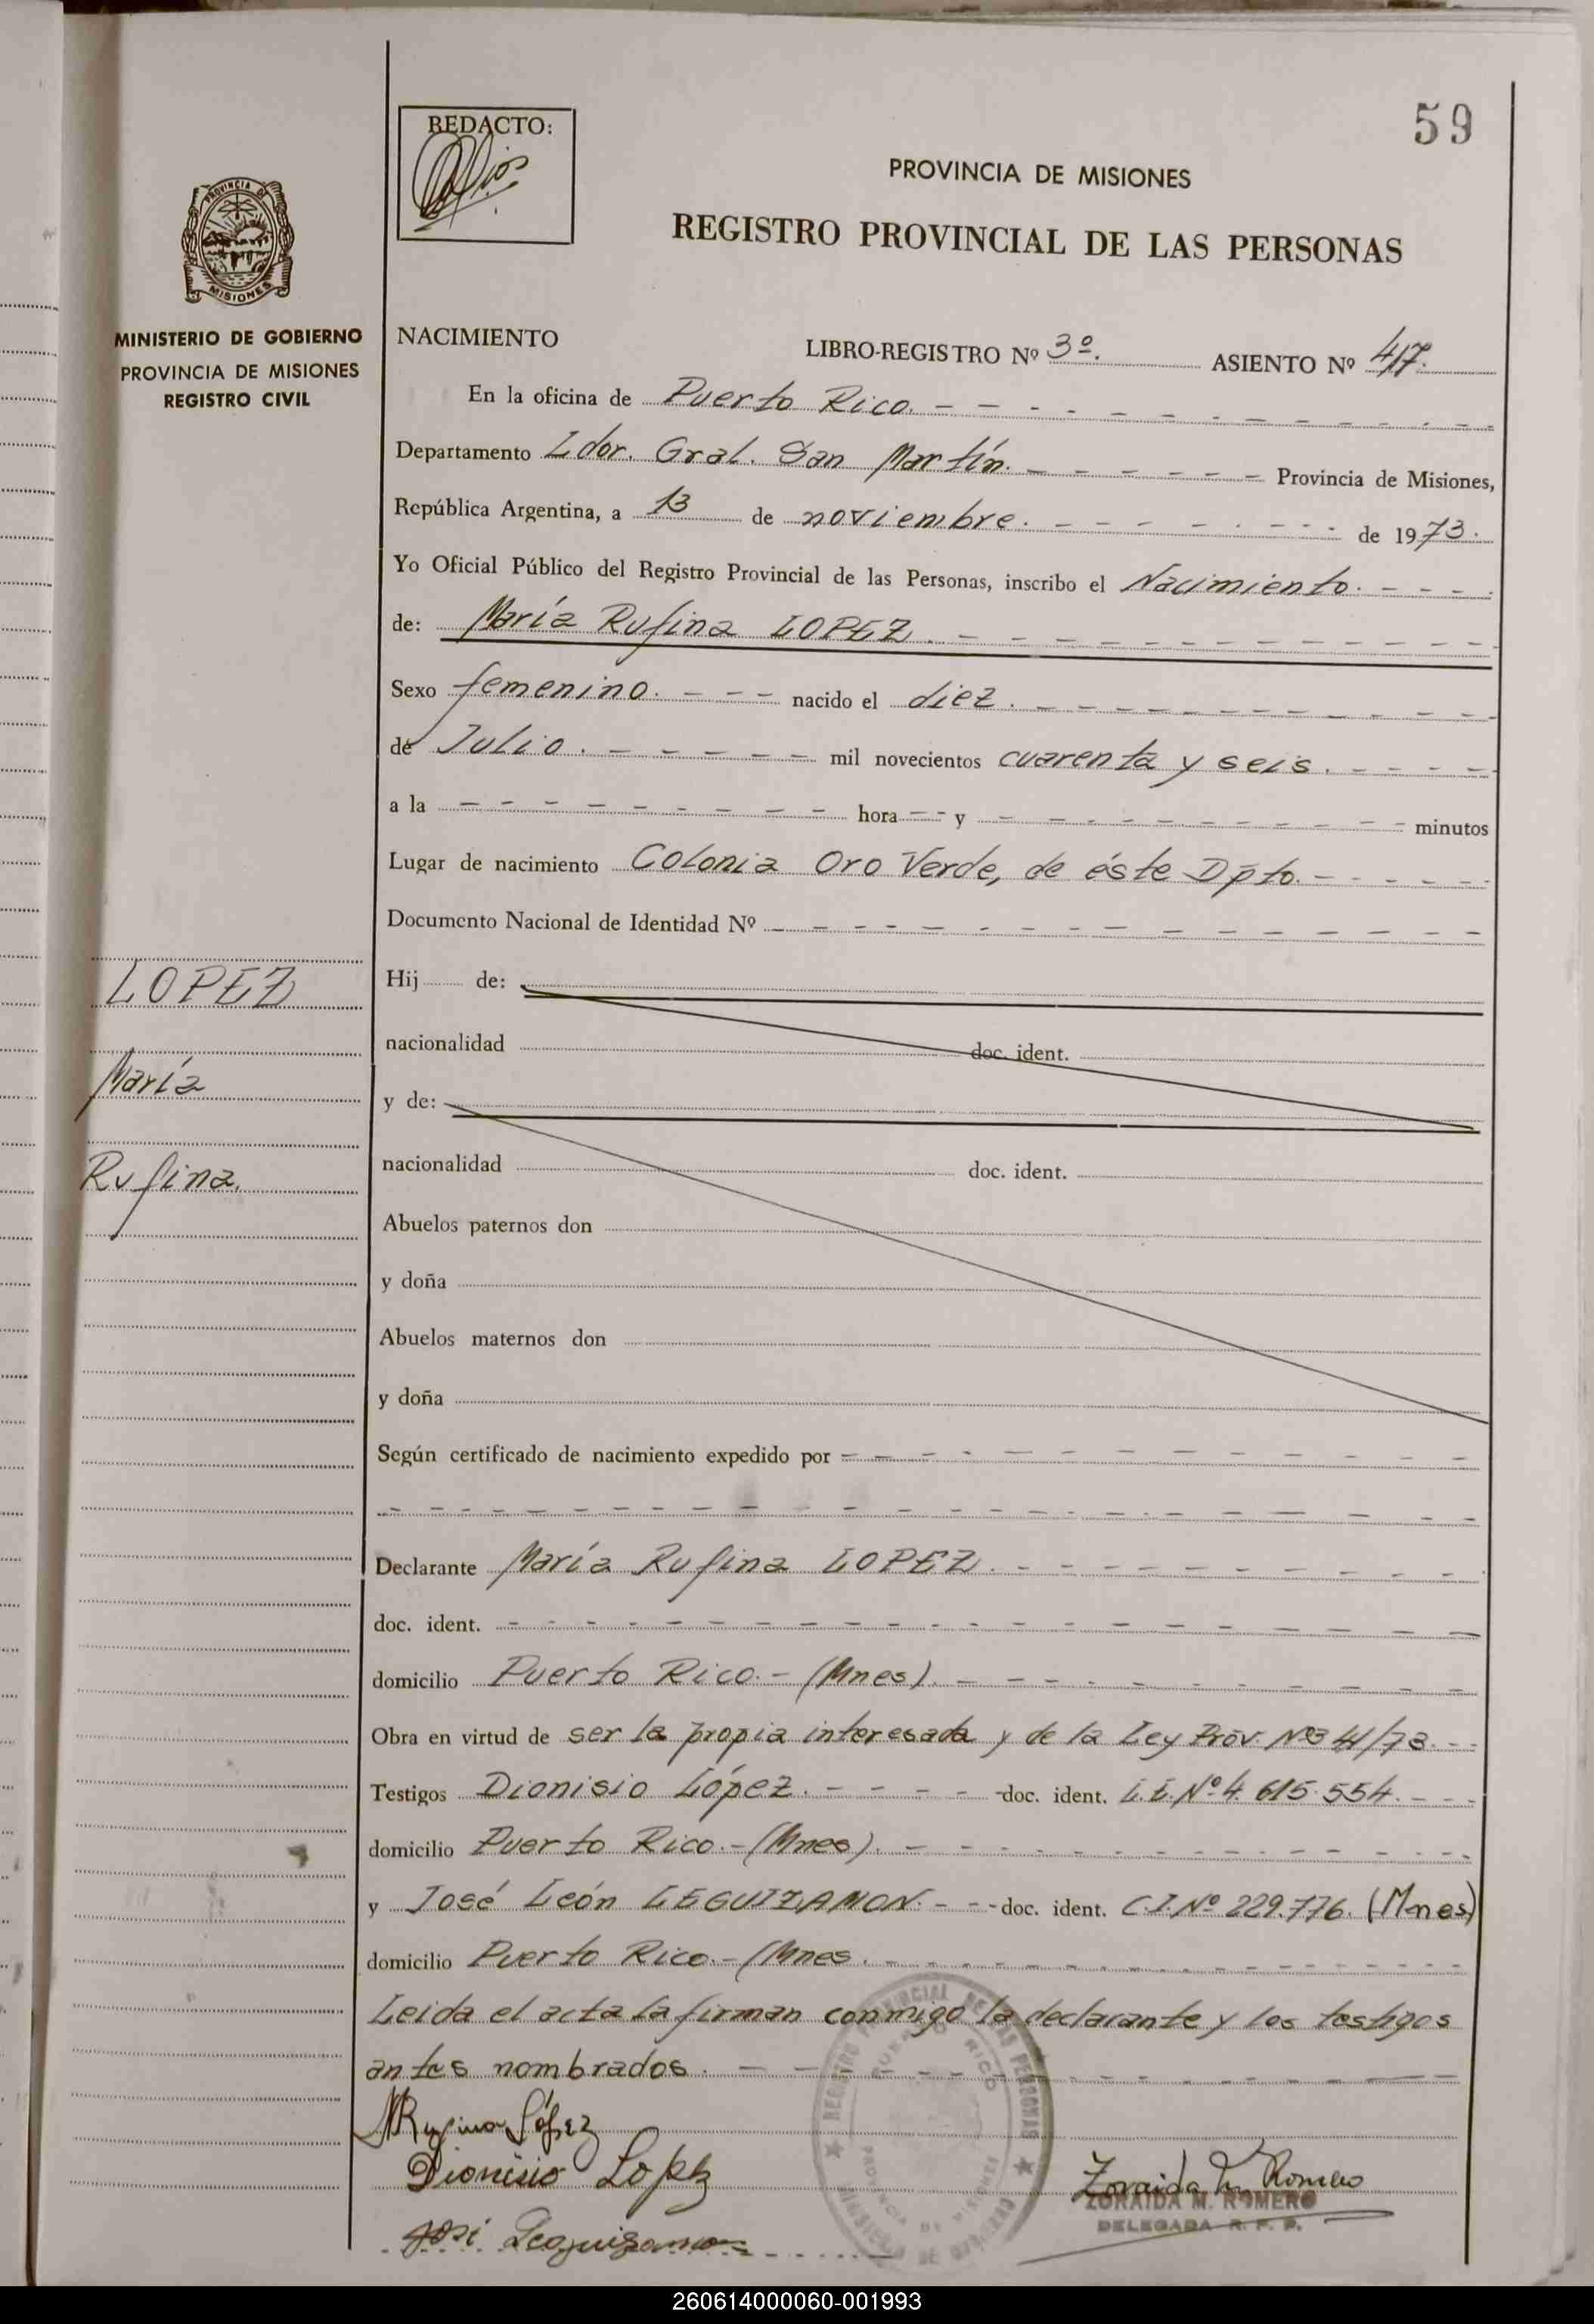 59
REDACTO:
PROVINCIA DE MISIONES
REGISTRO PROVINCIAL DE LAS PERSONAS
PROVINCIA DE
MISIONES
MINISTERIO DE GOBIERNO
PROVINCIA DE MISIONES
REGISTRO CIVIL
NACIMIENTO LIBRO-REGISTRO Nº 3º. ASIENTO Nº 417.
En la oficina de Puerto Rico.
Departamento Ldor. Gral. San Martín. Provincia de Misiones,
República Argentina, a 13 de noviembre. de 1973.
Yo Oficial Público del Registro Provincial de las Personas, inscribo el Nacimiento.
de: María Rufina LOPEZ.
Sexo femenino. nacido el diez.
de Julio. mil novecientos cuarenta y seis.
a la hora y minutos
Lugar de nacimiento Colonia Oro Verde, de éste Dpto.
Documento Nacional de Identidad Nº
LOPEZ
María
Rufina.
Hij de:
nacionalidad doc. ident.
y de:
nacionalidad doc. ident.
Abuelos paternos don
y doña
Abuelos maternos don
y doña
Según certificado de nacimiento expedido por
Declarante María Rufina LOPEZ.
doc. ident.
domicilio Puerto Rico.- (Mnes).
Obra en virtud de ser la propia interesada y de la Ley Prov.
Testigos Dionisio López. doc. ident. L.E. Nº 4.615.554.
domicilio Puerto Rico.- (Mnes).
y José León LEGUIZAMON. doc. ident. C.I. Nº 229.776. (Mnes)
domicilio Puerto Rico.- (Mnes.
Leida el acta la firman conmigo la declarante y los testigos
antes nombrados.
REGISTRO PROVINCIAL DE LAS PERSONAS
PUERTO RICO
PROVINCIA DE MISIONES
MRufina López
Dionisio Lopez
José Leguizamon
Zoraida M. Romero
ZORAIDA M. ROMERO
DELEGADA R. P. P.
260614000060-001993